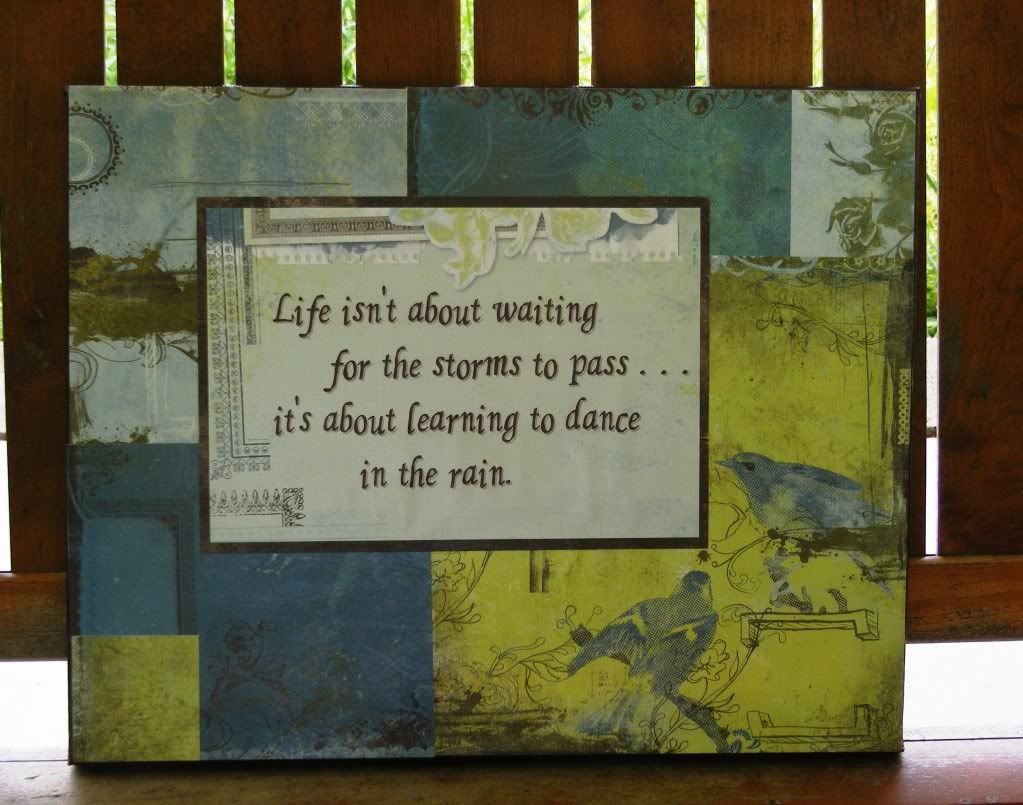 Life isn't about waiting
for the storms to pass . . .
it's about learning to dance
in the rain.